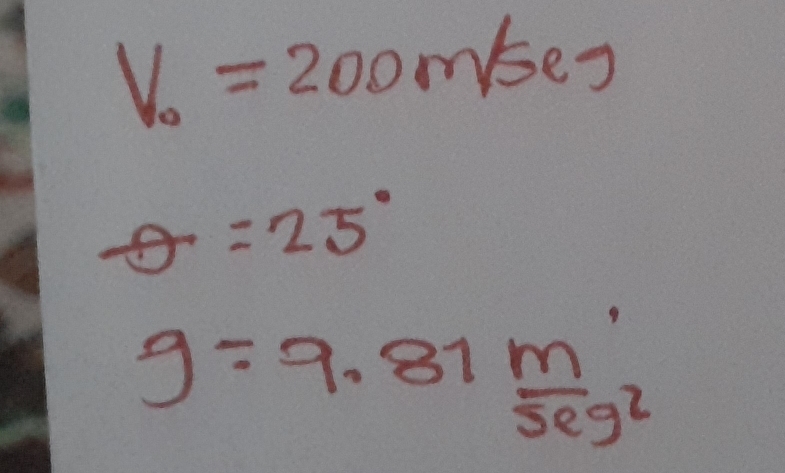 V₀ = 200m/seg
θ = 25°
g = 9.81 m/seg²